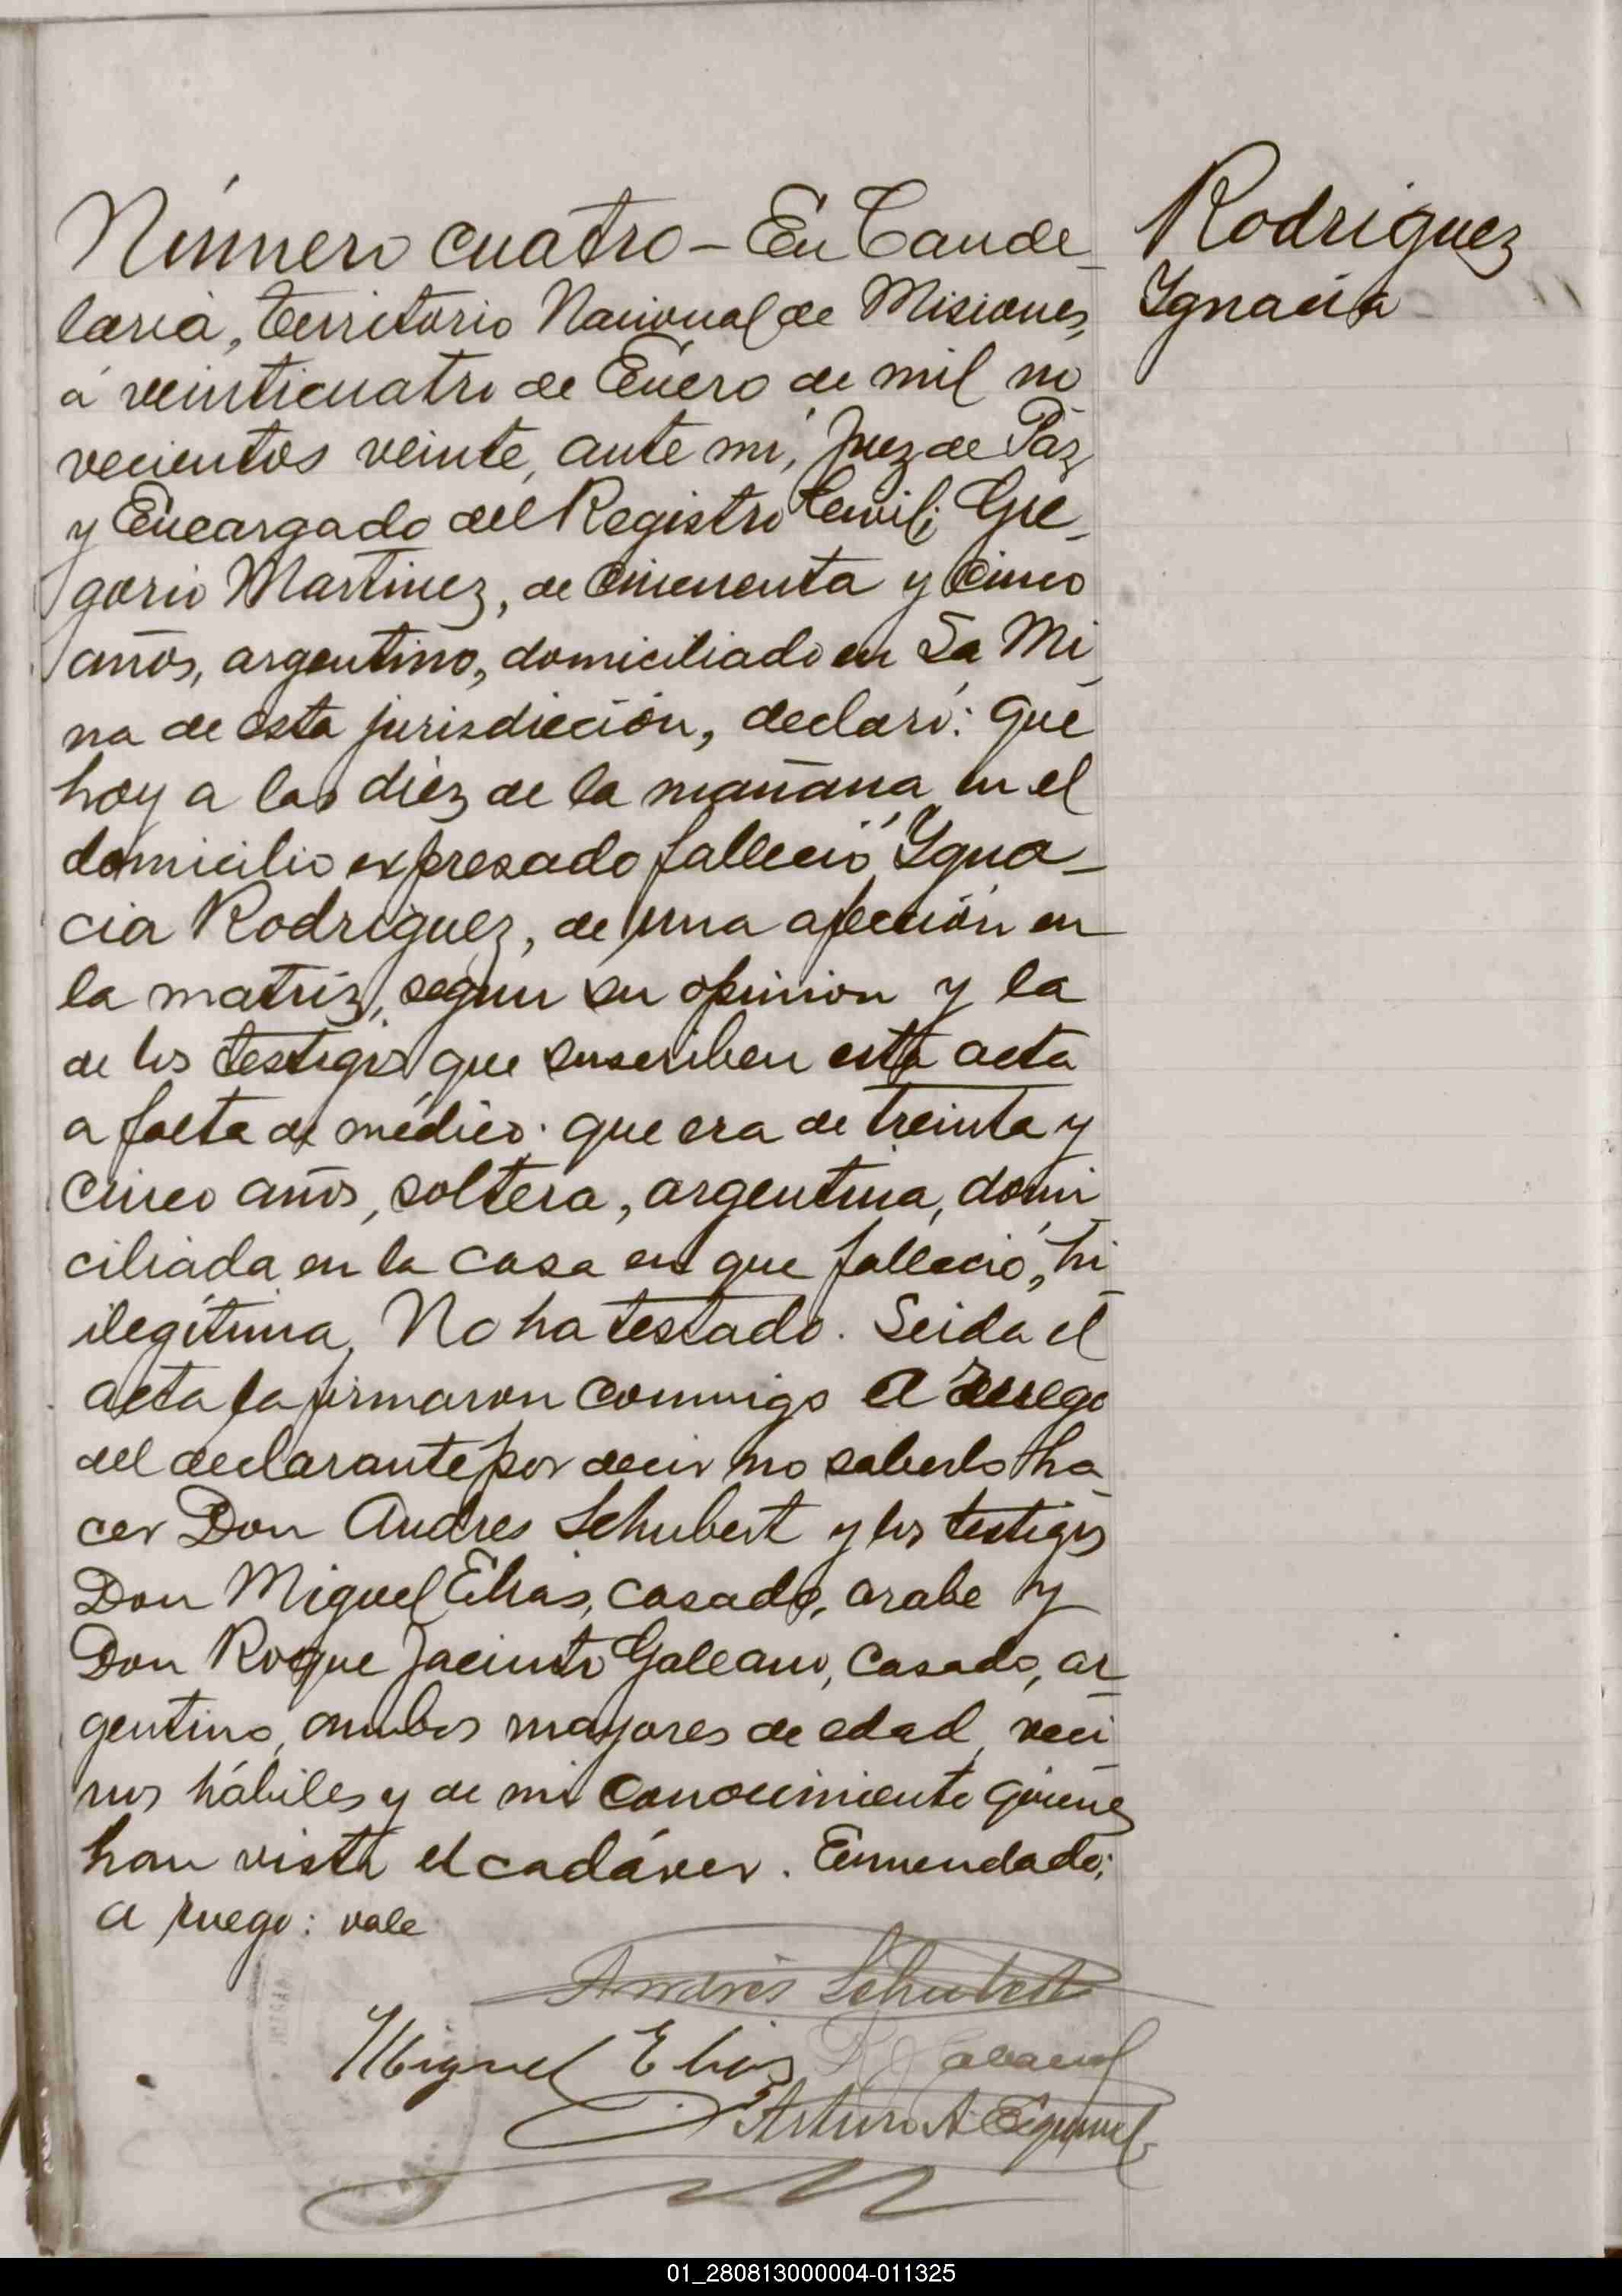 Número cuatro - En Cande-
laria, territorio Nacional de Misiones,
á veinticuatro de Enero de mil no-
vecientos veinte, ante mí, Juez de Paz
y Encargado del Registro Civil; Gre-
gorio Martinez, de cincuenta y cinco
años, argentino, domiciliado en La Mi-
na de esta jurisdicción, declaró: que
hoy a las diez de la mañana en el
domicilio expresado falleció Ygna-
cia Rodriguez, de una afección en
la matriz, segun su opinion y la
de los testigos que suscriben esta acta
a falta de médico. que era de treinta y
cinco años, soltera, argentina, domi-
ciliada en la casa en que falleció, hi-
ilegítima, No ha testado. Leida el
acta la firmaron conmigo a ruego
del declarante por decir no saberlo ha-
cer Don Andres Schubert y los testigos
Don Miguel Elias, casado, arabe y
Don Roque Jacinto Galeano, casado, ar-
gentino, ambos mayores de edad, veci-
nos hábiles y de mi conocimiento quienes
han visto el cadáver. Enmendado:
a ruego: vale
Andrés Schubert
Miguel Elias
Arturo A.
Rodriguez
Ygnacia
01_280813000004-011325